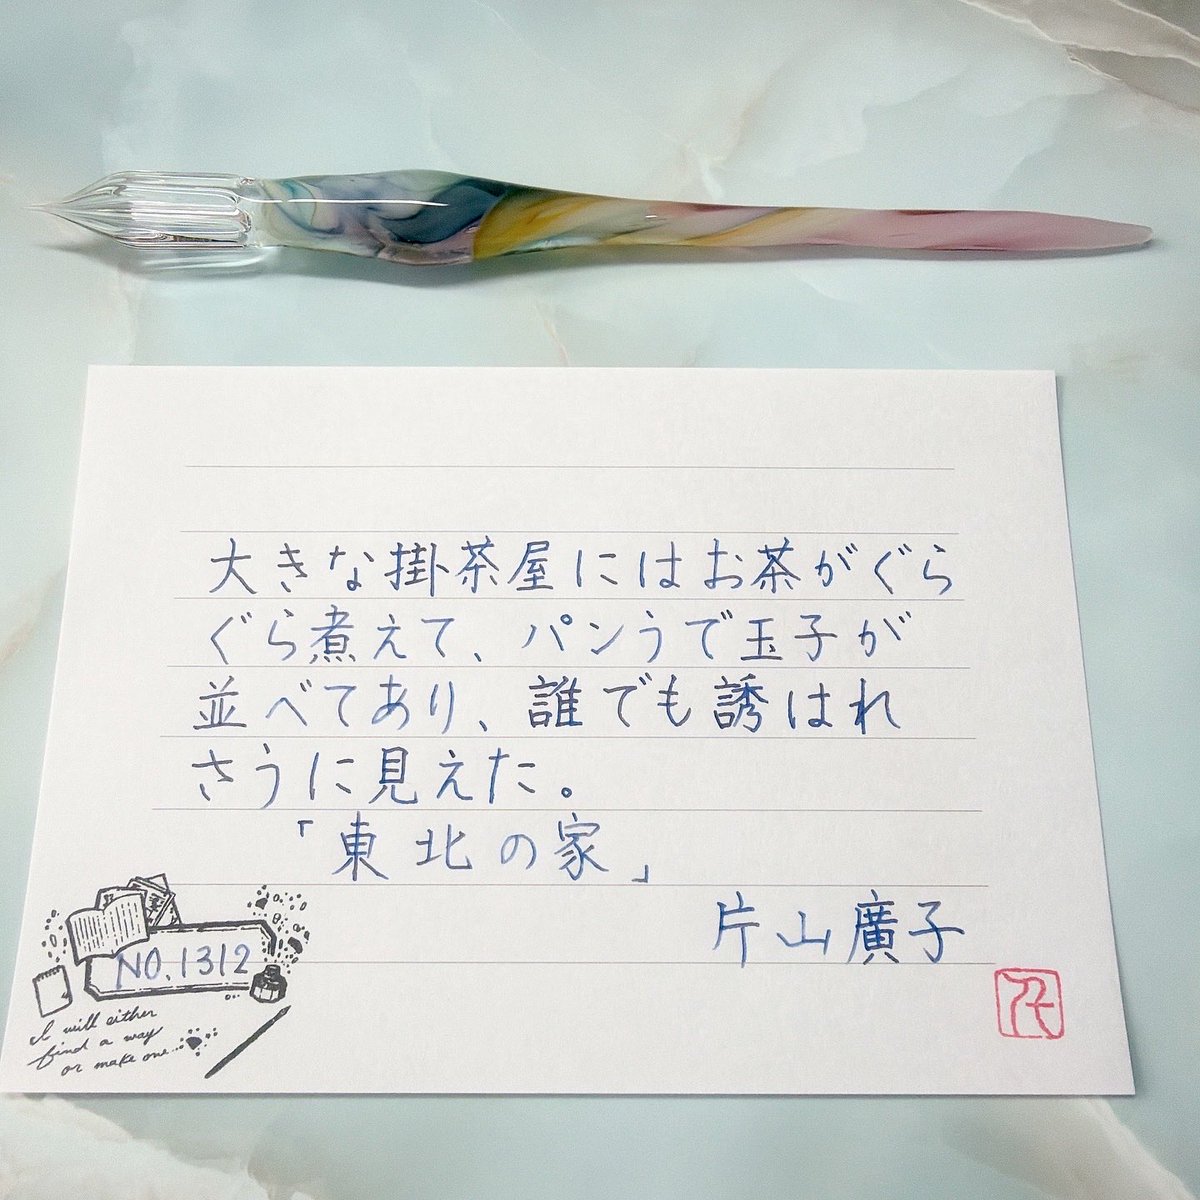 大きな掛茶屋にはお茶がぐら
ぐら煮えて、パンうで玉子が
並べてあり、誰でも誘はれ
さうに見えた。
「東北の家」
片山廣子
NO.1312
I will either
find a way
or make one...